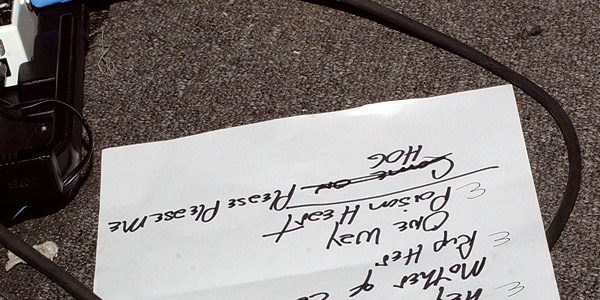 Hey
E Mother of
Rip Her
E One Way
E Poison Heart
Come on Please Please Me
HOG